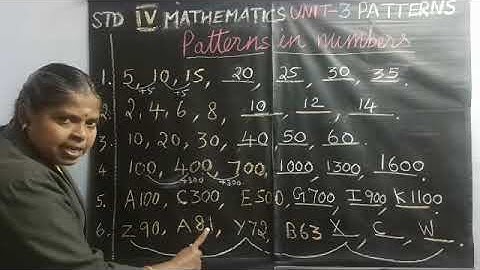 STD IV MATHEMATICS UNIT-3 PATTERNS
Patterns in numbers
1. 5, 10, 15, 20, 25, 30, 35.
+5 +5
2. 2, 4, 6, 8, 10, 12, 14.
3. 10, 20, 30, 40, 50, 60.
4. 100, 400, 700, 1000, 1300, 1600.
+300 +300
5. A100, C300, E500, G700, I900, K1100
6. Z90, A81, Y72, B63 X, C, W